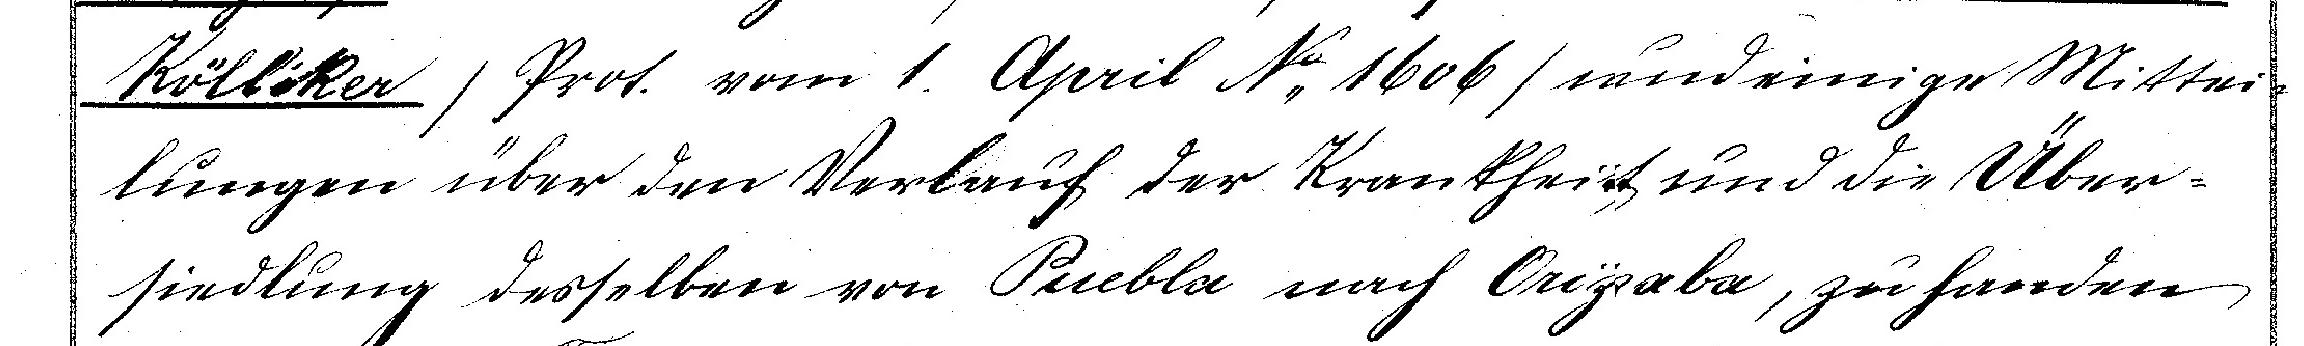 Kölliker / Prot. vom 1. April No. 1606 / und einige Mittei-
lungen über den Verlauf der Krankheit und die Über-
siedlung desselben von Puebla nach Orizaba, zu handen